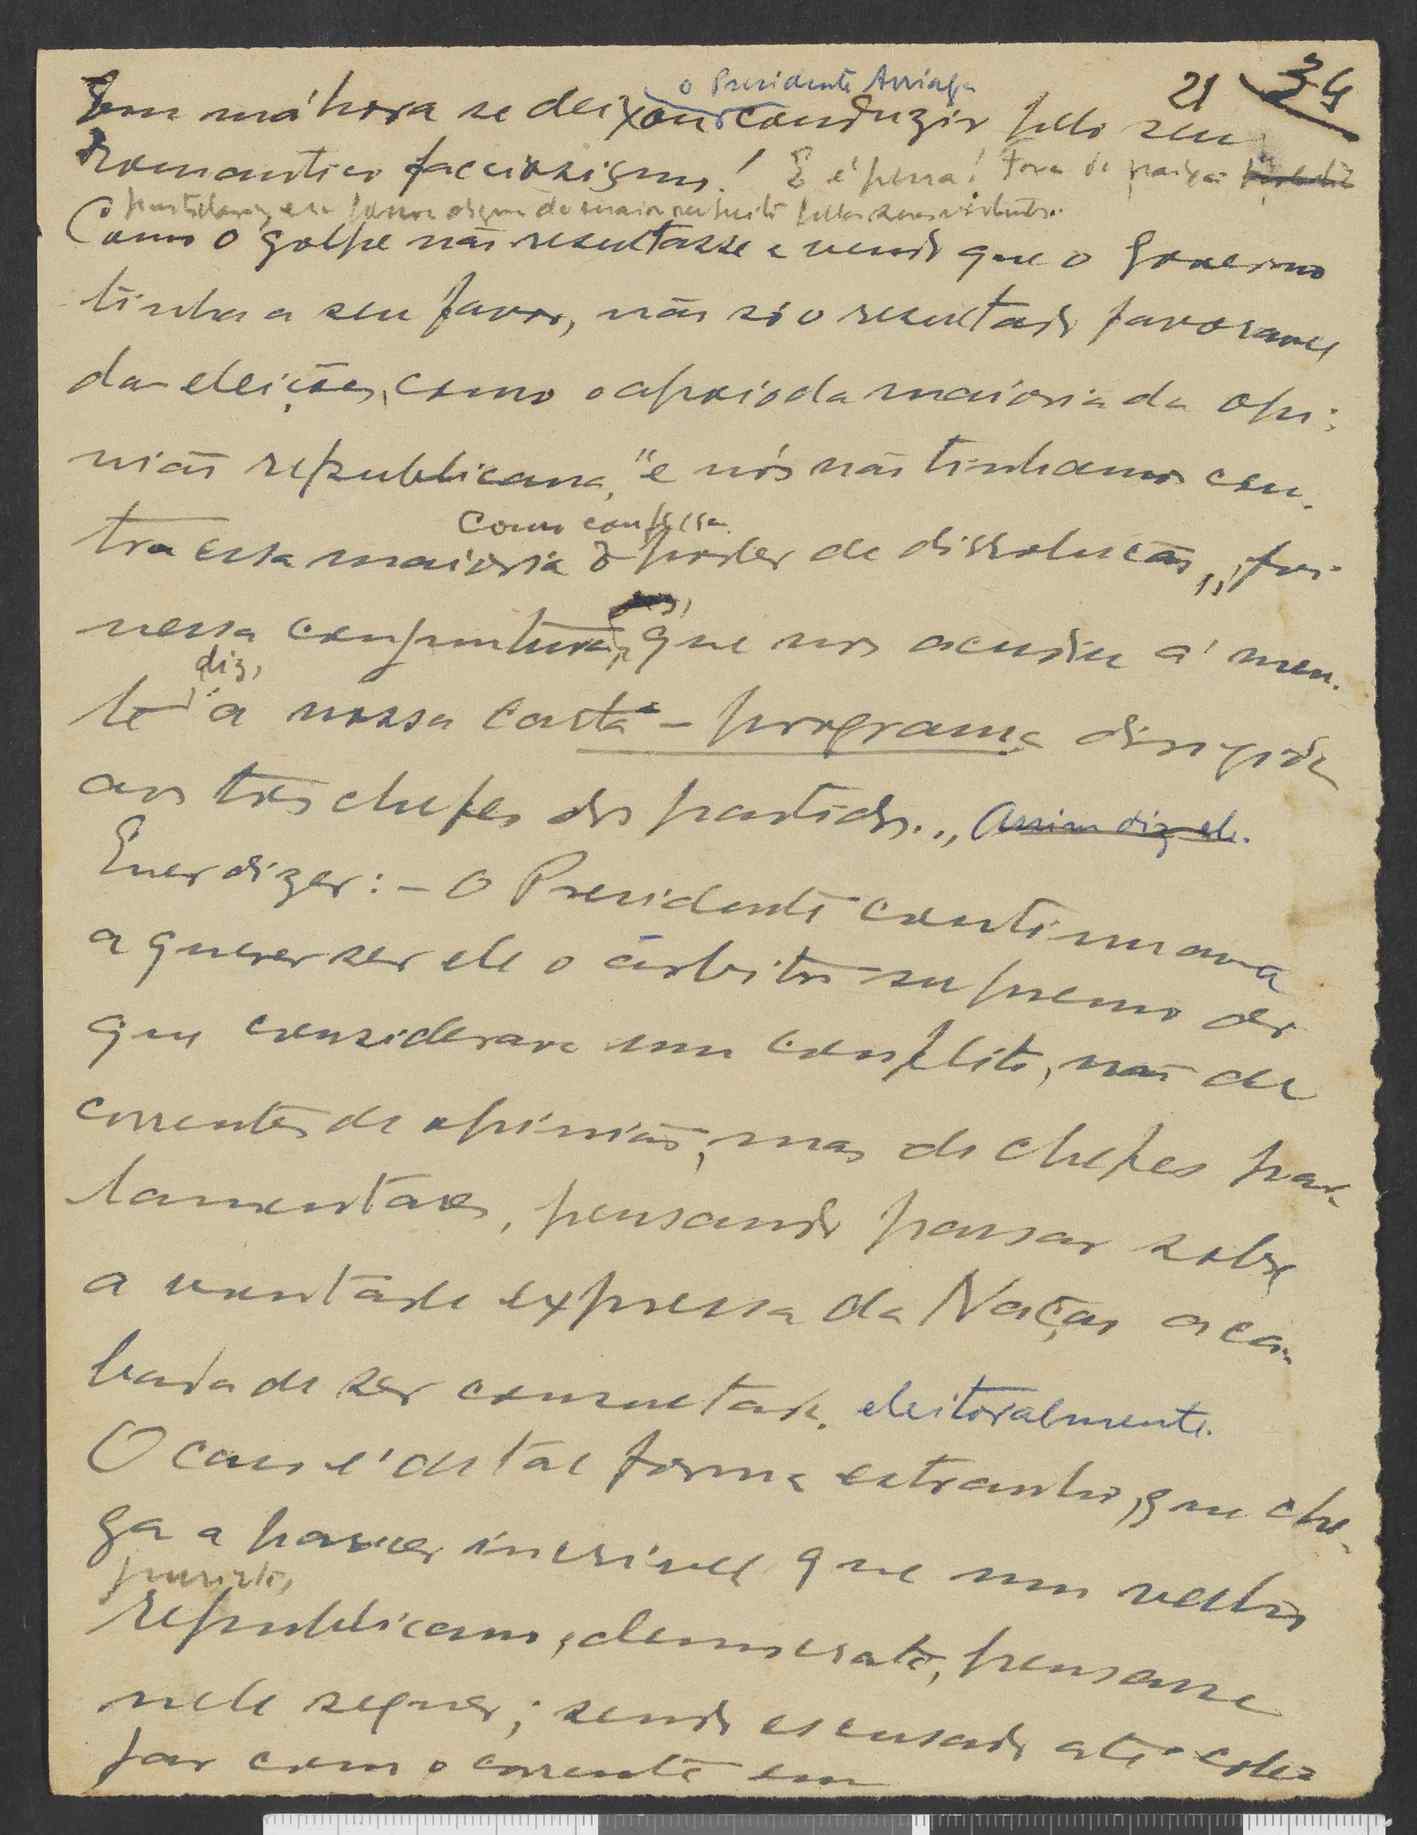 o Presidente Arriaga
21 34
Em má hora se deixou conduzir pelo seu
romantico facciosismo! E é pena! Fora da paixão
partidaria, era pessoa digna do maior respeito pelas suas virtudes.
Como o golpe não resultasse e vendo que o Governo
tinha a seu favor, não só o resultado favoravel
da eleição, como o apoio da maioria da opi-
nião republicana, "e nós não tinhamos con-
como confessa
tra essa maioria o poder de dissolução", foi
nessa conjuntura, que nos acudiu á men-
diz,
te "a nossa carta-programa dirigida
aos três chefes dos partidos.., Assim diz ele.
Quer dizer: - O Presidente continuava
a querer ser ele o árbitro supremo do
que considerava um conflito, não de
correntes de opinião, mas de chefes par-
lamentares, pensando passar sobre
a vontade expressa da Nação aca-
bada de ser consultada eleitoralmente.
O caso é de tal forma estranho, que che-
ga a parecer incrivel que um velho
purista,
republicano, democrata, pensasse
nele sequer; sendo escusado até
com o corrente em